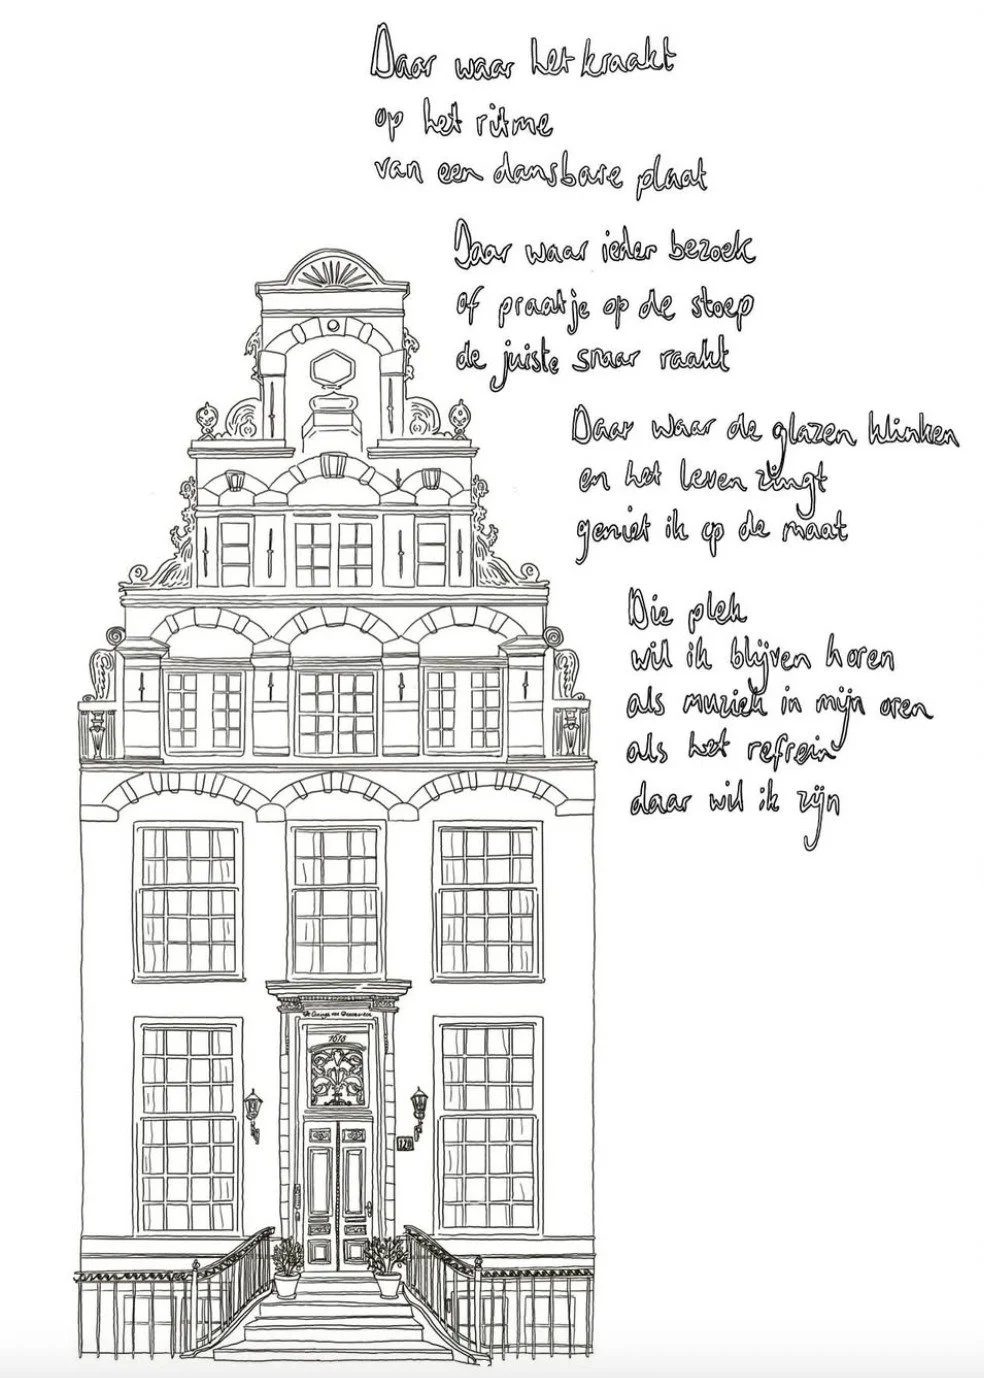 Daar waar het kraakt
op het ritme
van een dansbare plaat
Daar waar ieder bezoek
of praatje op de stoep
de juiste snaar raakt
Daar waar de glazen klinken
en het leven zingt
geniet ik op de maat
Die plek
wil ik blijven horen
als muziek in mijn oren
als het refrein
daar wil ik zijn
1618
120